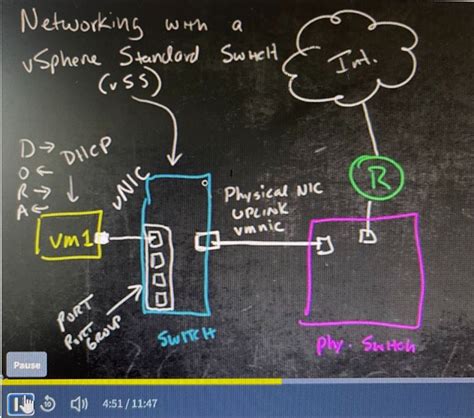 Networking with a
vSphere Standard Switch
(vSS)
Int.
D→ DHCP
O←
R→
A←
vNIC
Physical NIC
UPLINK
vmnic
R
vm1
PORT
PORT GROUP
SWITCH
phy. Switch
Pause
10
4:51 / 11:47